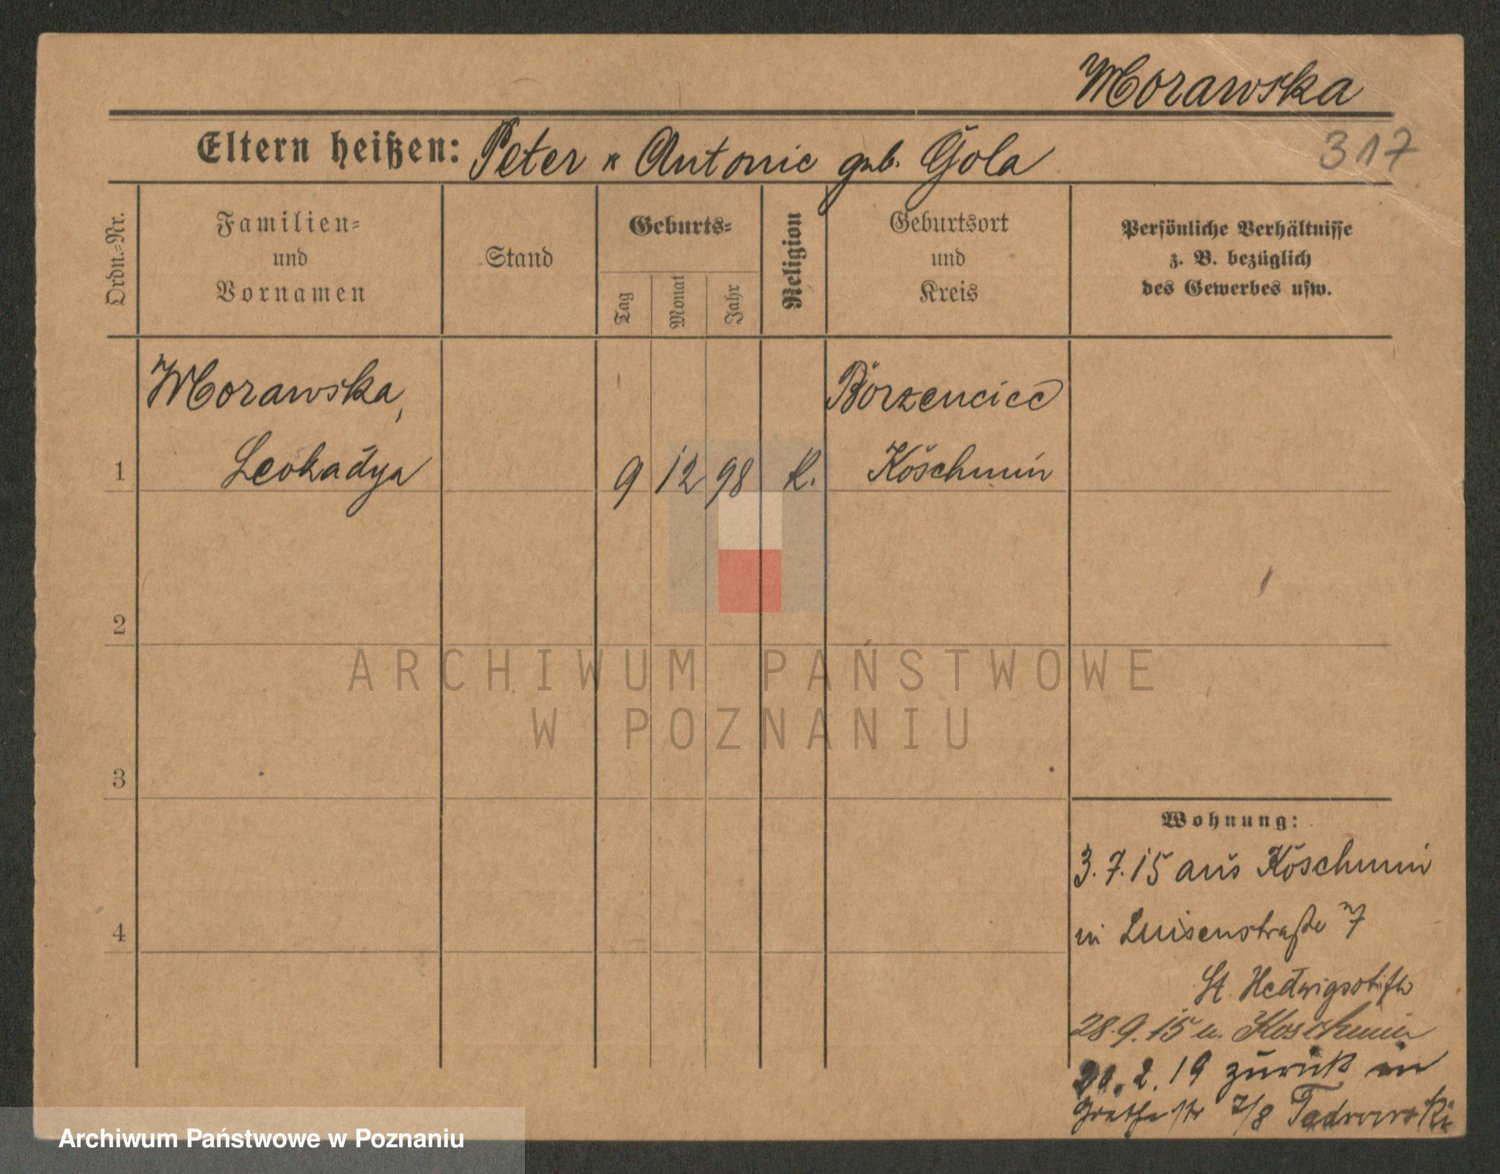 Morawska
317
Eltern heißen: Peter u Antonie geb. Gola
Ordn.-Nr.
Familien-
und
Vornamen
Stand
Geburts-
Tag
Monat
Jahr
Religion
Geburtsort
und
Kreis
Persönliche Verhältnisse
z. B. bezüglich
des Gewerbes usw.
Morawska,
Borzencice
1 Leokadya 9 12 98 K. Koschmin
2
3
4
Wohnung:
3.7.15 aus Koschmin
in Luisenstraße 7
St. Hedwigsstift
28.9.15 n. Koschmin
20.2.19 zurück in
7/8
ARCHIWUM PAŃSTWOWE
W POZNANIU
Archiwum Państwowe w Poznaniu